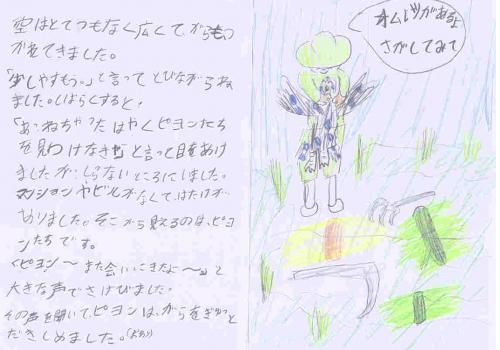 空はとてつもなく広くてがらもつ
かれてきました。
「少しやすもう。」と言ってとびながらね
ました。しばらくすると、
「あ、ねちゃったはやくピヨンたち
を見つけなきゃ」と言って目をあけ
ましたが、しらないところにいました。
マンションやビルがなくて、はたけが
ありました。そこから見えるのは、ピヨ
ンたちです。
「ピヨン〜また会いにきたよ〜」と
大きな声でさけびました。
その声を聞いて、ピヨンは、がらをぎゅっと
だきしめました。(おわり)
があるよ
さがしてみて